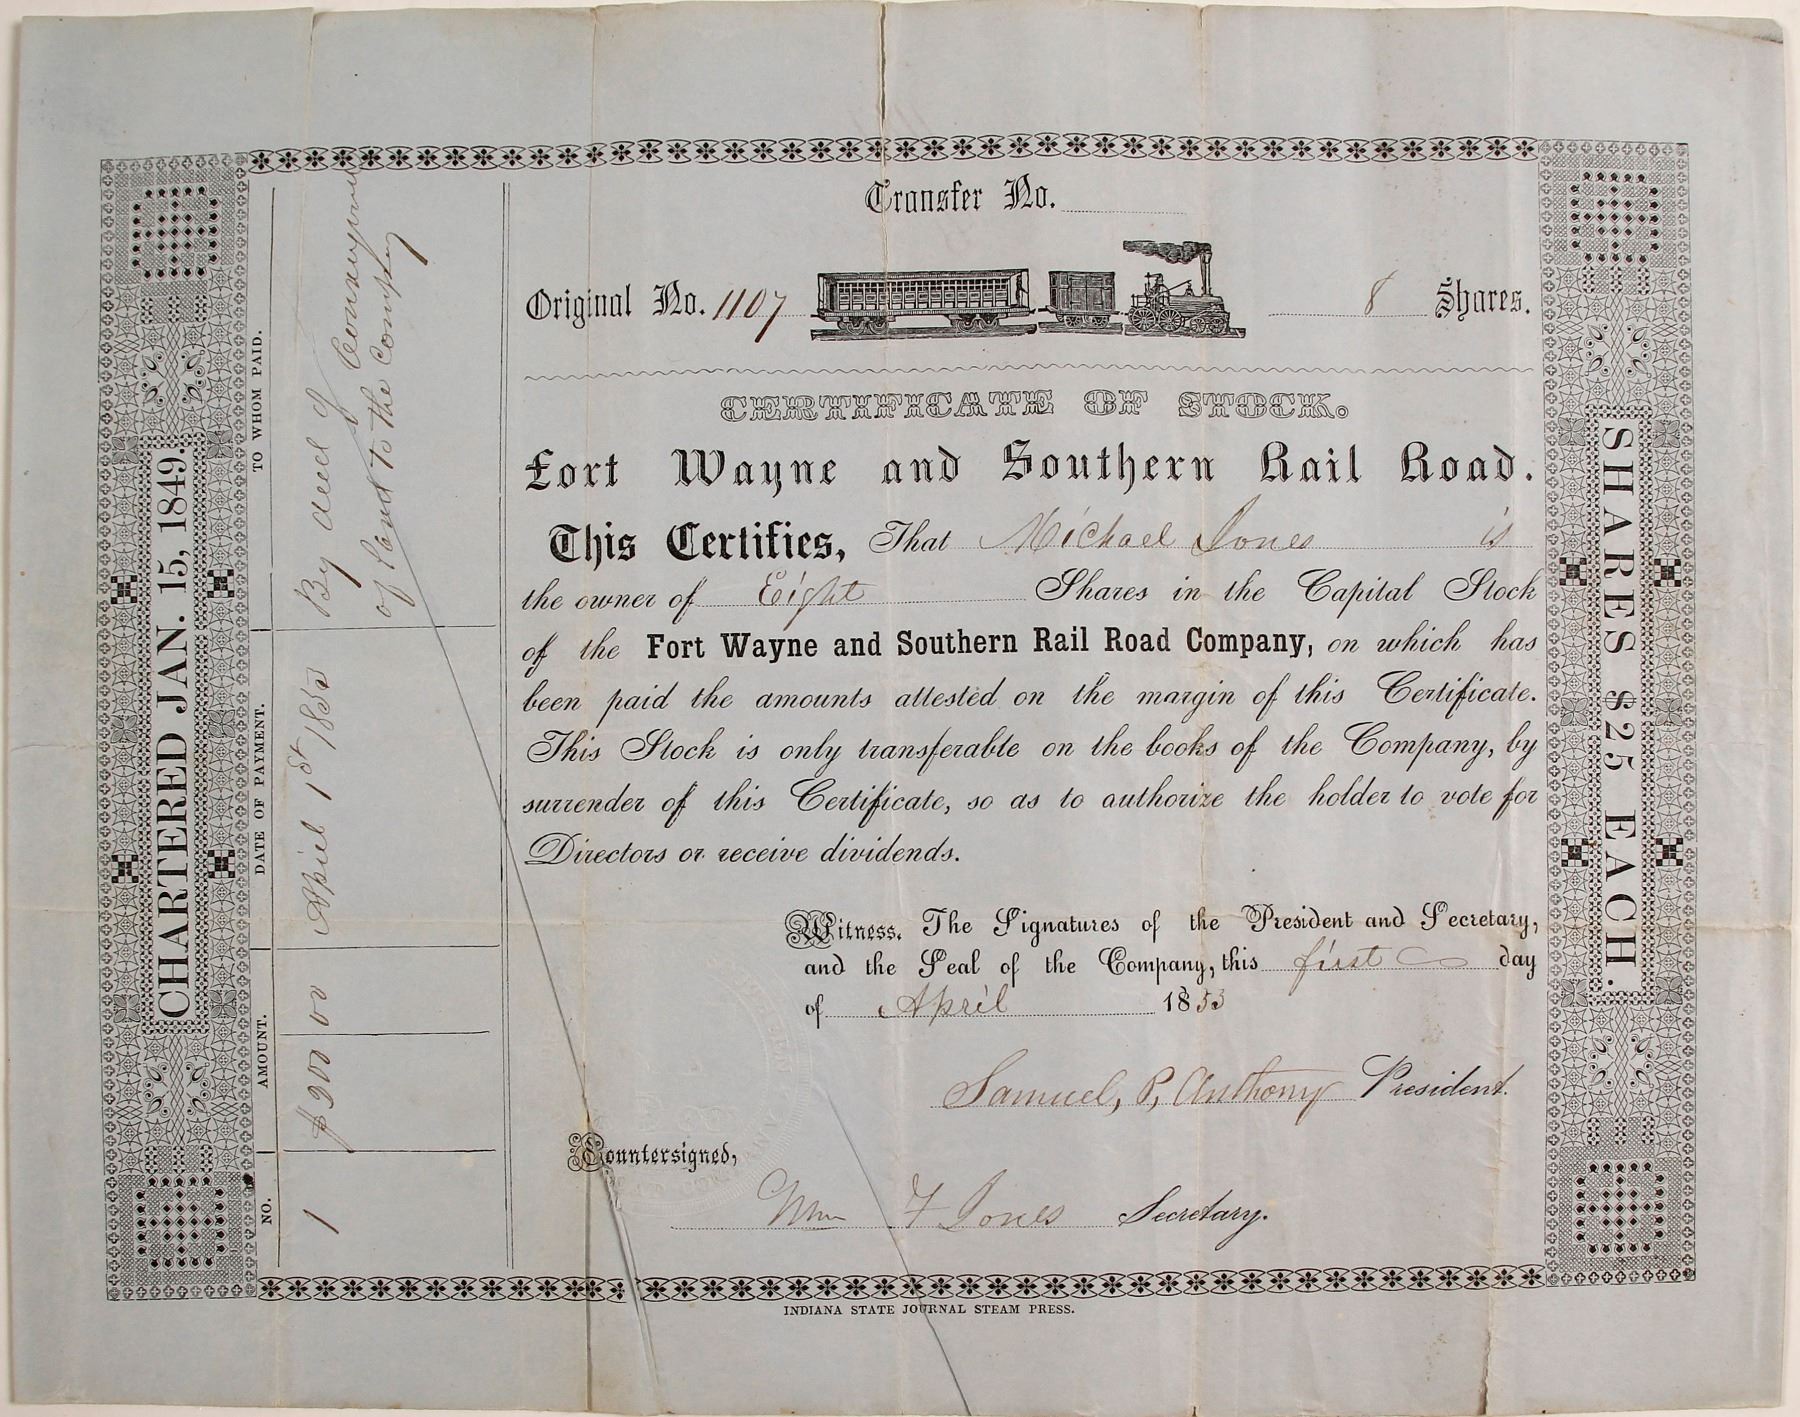 Transfer No.
Original No. 1107
8 Shares.
CERTIFICATE OF STOCK.
Fort Wayne and Southern Rail Road.
This Certifies, That Michael Jones is
the owner of Eight Shares in the Capital Stock
of the Fort Wayne and Southern Rail Road Company, on which has
been paid the amounts attested on the margin of this Certificate.
This Stock is only transferable on the books of the Company, by
surrender of this Certificate, so as to authorize the holder to vote for
Directors or receive dividends.
Witness. The Signatures of the President and Secretary,
and the Seal of the Company, this first day
of April 1853
Samuel, P, Anthony President.
Countersigned,
Wm F Jones Secretary.
INDIANA STATE JOURNAL STEAM PRESS.
CHARTERED JAN. 15, 1849.
NO. AMOUNT. DATE OF PAYMENT. TO WHOM PAID.
1 $200 00 April 1st 1853 By deed of Conveyance
of land to the Company
SHARES $25 EACH.